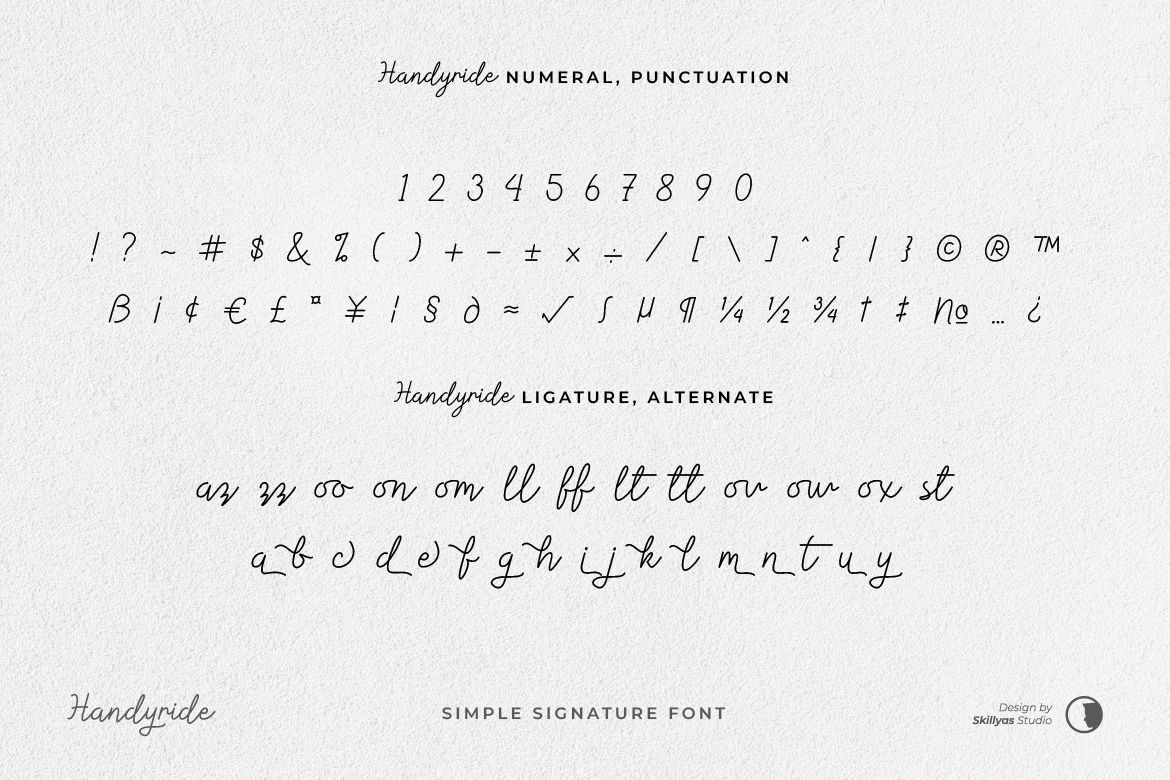 Handyride NUMERAL, PUNCTUATION
1 2 3 4 5 6 7 8 9 0
! ? ~ # $ & % ( ) + − ± × ÷ / [ \ ] ^ { | } © ® ™
ß ¡ ¢ € £ ¤ ¥ ¦ § ∂ ≈ √ ∫ µ ¶ ¼ ½ ¾ † ‡ № … ¿
Handyride LIGATURE, ALTERNATE
az zz oo on om ll ff lt tt ov ow ox st
a b c d e f g h i j k l m n t u y
Handyride
SIMPLE SIGNATURE FONT
Design by
Skillyas Studio